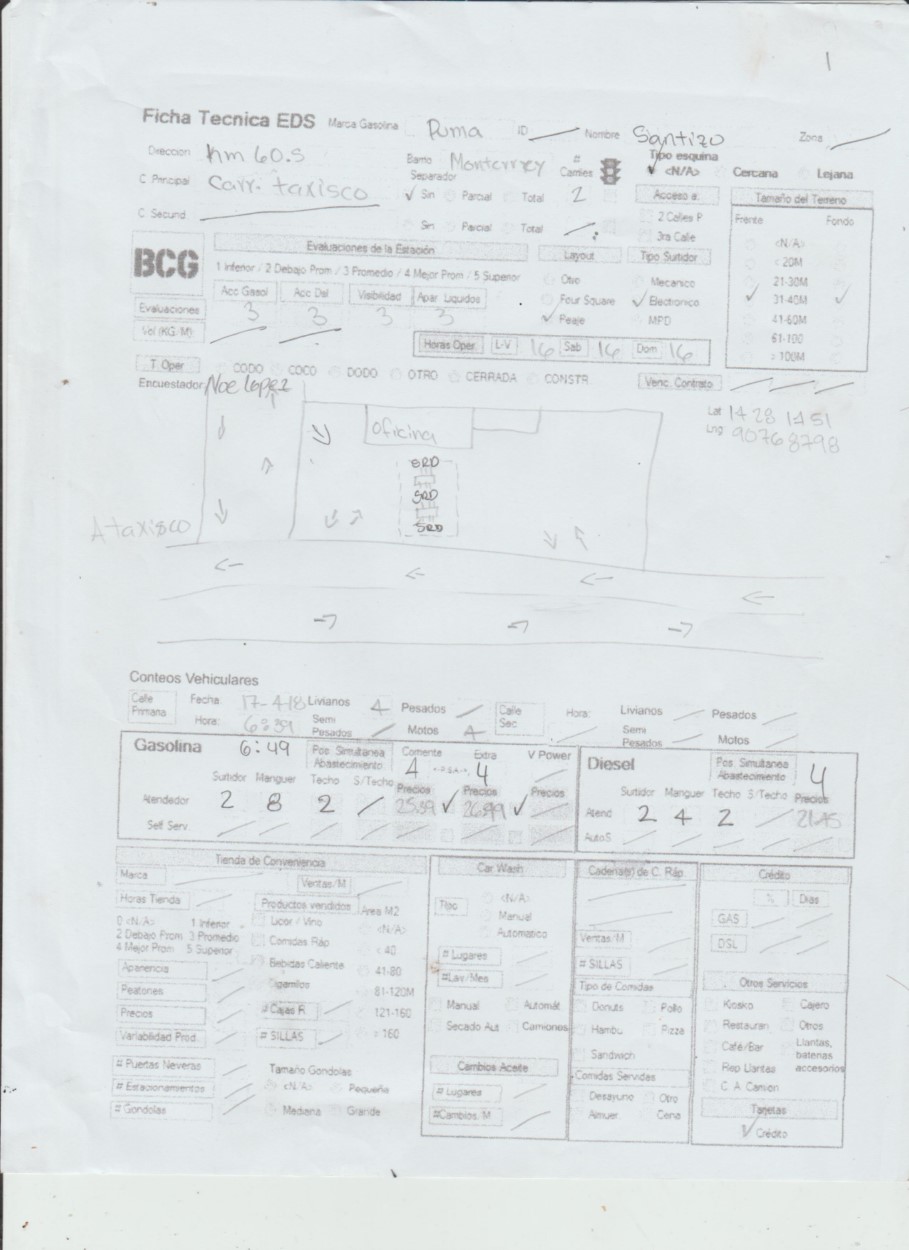 1
Ficha Tecnica EDS Marca Gasolina Puma ID Nombre Santizo Zona
Direccion Km 60.5 Barrio Monterrey # Carriles Tipo esquina
Separador <N/A> Cercana Lejana
C Principal Carr. taxisco Sin Parcial Total 2 Acceso a: Tamaño del Terreno
C Secund. Sin Parcial Total 2 Calles P Frente Fondo
3ra Calle <N/A>
BCG Evaluaciones de la Estación Layout Tipo Surtidor < 20M
1 Inferior / 2 Debajo Prom / 3 Promedio / 4 Mejor Prom / 5 Superior Otro Mecanico 21-30M
Acc Gasol Acc Dsl Visibilidad Apar Liquidos Four Square Electronico 31-40M
Evaluaciones 3 3 3 3 Peaje MPD 41-60M
Vol (KG/M) 61-100
Horas Oper. L-V 16 Sab 16 Dom 16 > 100M
T. Oper CODO COCO DODO OTRO CERRADA CONSTR. Venc. Contrato
Encuestador Noe Lopez
Lat 14 28 1451
Lng 90768798
Oficina
SRD
SRD
SRD
A taxisco
Conteos Vehiculares
Calle Primaria Fecha: 17-4-18 Livianos 4 Pesados Calle Sec Hora: Livianos Pesados
Hora: 6:39 Semi Pesados Motos 4 Semi Pesados Motos
Gasolina 6:49 Pos. Simultanea Abastecimiento Corriente 4 Extra 4 V Power Diesel Pos. Simultanea Abastecimiento 4
Surtidor Manguer Techo S/Techo Precios Precios Precios Surtidor Manguer Techo S/Techo Precios
Atendedor 2 8 2 25.89 26.99 Atend 2 4 2 21.45
Self Serv. AutoS
Tienda de Conveniencia Car Wash Cadena(s) de C. Ráp. Crédito
Marca Ventas/M % Dias
Horas Tienda Productos vendidos Area M2 Tipo <N/A> GAS
0 <N/A> 1 Inferior Licor / Vino <N/A> Manual
2 Debajo Prom 3 Promedio Comidas Ráp < 40 Automatico Ventas/M DSL
4 Mejor Prom 5 Superior Bebidas Caliente 41-80 # Lugares # SILLAS
Apariencia Cigarrillos 81-120M #Lav/Mes Tipo de Comidas Otros Servicios
Peatones Manual Automát Donuts Pollo Kiosko Cajero
Precios # Cajas R 121-160 Secado Aut Camiones Hambu Pizza Restauran Otros
Variabilidad Prod. # SILLAS > 160 Sandwich Café/Bar Llantas, baterias accesorios
# Puertas Neveras Tamaño Gondolas Cambios Aceite Comidas Servidas Rep Llantas
# Estacionamientos <N/A> Pequeña # Lugares Desayuno Otro C. A. Camion
# Gondolas Mediana Grande #Cambios/M Almuer Cena Tarjetas
Crédito